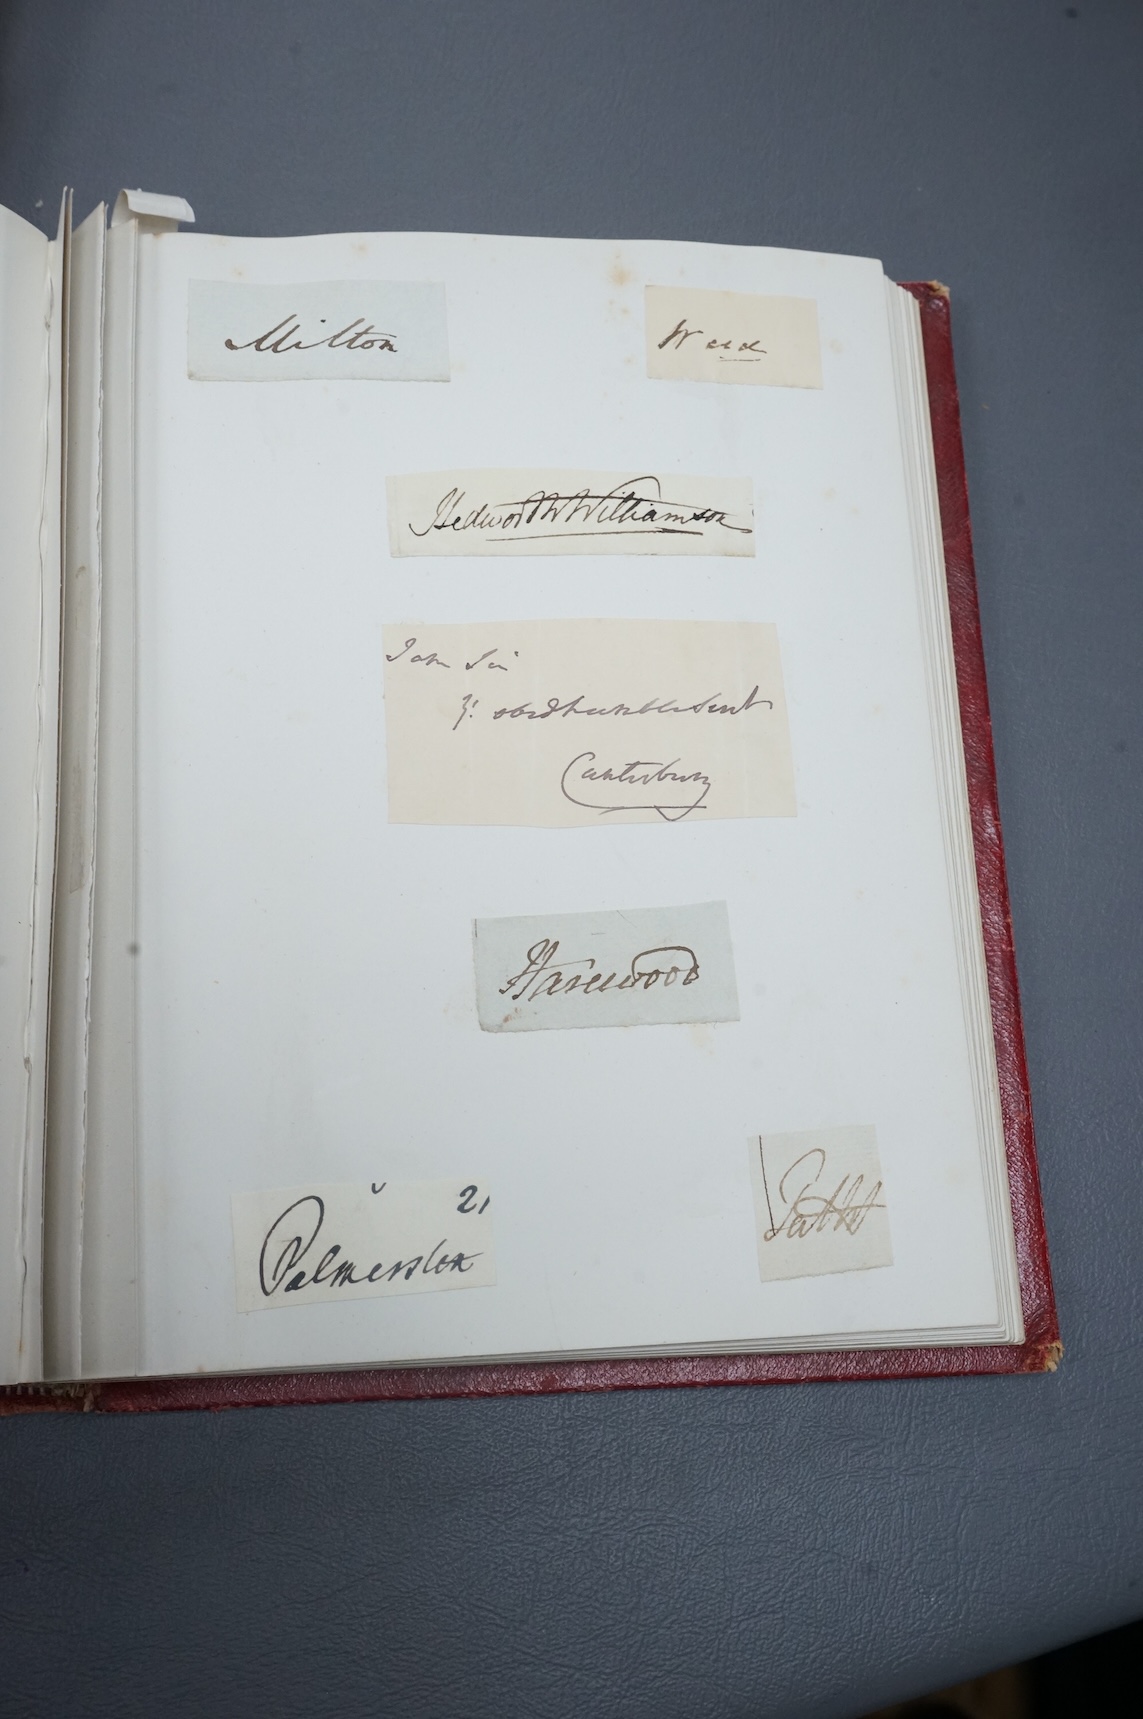 Milton
Ward
Hedworth Williamson
I am Sir
Yr. obedt humble Servt
Canterbury
Harewood
21
Palmerston